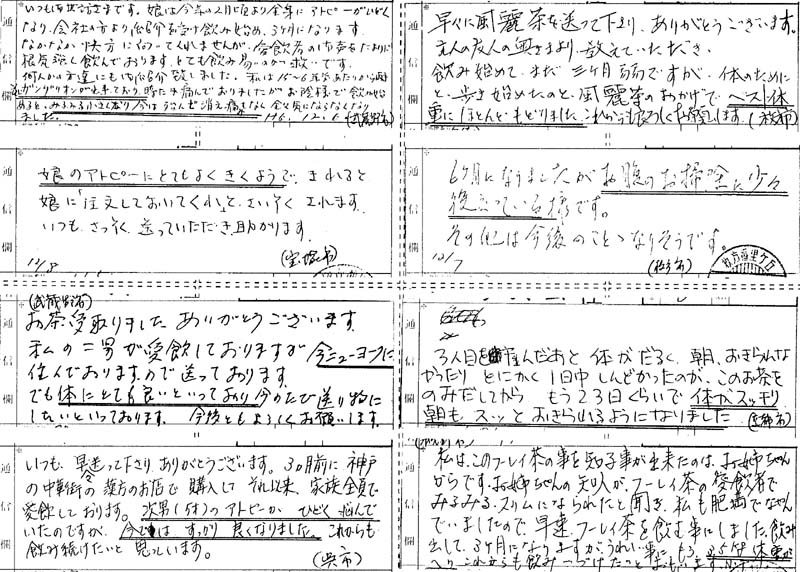 いつもお世話さまです。娘は今年の2月頃より全身にアトピーがひどく
なり、会社の方より紹介を受け飲み始め、3ヶ月になります。
なかなかいい快方に向ってくれませんが、愛飲者のお声をたよりに
根気強く飲んでおります。とても飲み易いのが救いです。
何人かの友達にもご紹介致しました。私は15〜6年前あたりから両
足ガングリオンが出来ており、時に痛んでおりましたがお陰様で飲み始
めると、みるみる小さくなり今はうそんぜ消え痛みなく全く気にならなくなり
ました。 H6.12.6
通信欄
早々に風麗茶を送って下さり、ありがとうございます。
主人の友人の奥さまより、教えていただき、
飲み始めて、まだ三ヶ月弱ですが、体のために
と、歩き始めたのと、風麗茶のおかげで、ベスト体
重にほとんどもどりました。これからも宜しくお願いします。
通信欄
娘のアトピーにとてもよくきくようで、きれると
娘に「注文しておいてくれ」と、さいそくされます。
いつも、さっそく送っていただき助かります。
(宝塚市)
12/8
通信欄
6ヶ月になりましたがお腹のお掃除に少々
役立っている様です。
その他は今後のことゝなりそうです。
12/7
通信欄
(武蔵野市)
お茶受取りました ありがとうございます。
私の二男が愛飲しておりますが 今ニューヨークに
住んでおりますので送っております。
でも体にとても良いといっており今のたび送り物に
したいといっております。 今後ともよろしくお願いします。
通信欄
3人目を産んだあと 体がだるく、朝、おきられな
かったり とにかく1日中しんどかったのが、このお茶を
のみだしてから もう23日くらいで体がスッキリ
朝もスッとおきられるようになりました
通信欄
いつも、早々送って下さり、ありがとうございます。3ヵ月前に 神戸
の中華街の漢方のお店で購入して それ以来、家族全員で
愛飲しております。次男(1才)のアトピーが ひどく悩んで
いたのですが、今ではすっかり良くなりました。これからも
飲み続けたいと思っています。
(呉市)
通信欄
私は、このフーレイ茶の事を知る事が出来たのは、お姉ちゃん
からです。お姉ちゃんの知人が、フーレイ茶の愛飲者で
みるみるスリムになられたと聞き、私も肥満でなやん
でいましたので、早速フーレイ茶を飲む事にしました。飲み
出して、3ヶ月になりますがうれしい事に もう、3.5kg 体重が
へり これからも飲みつづけたいと
通信欄